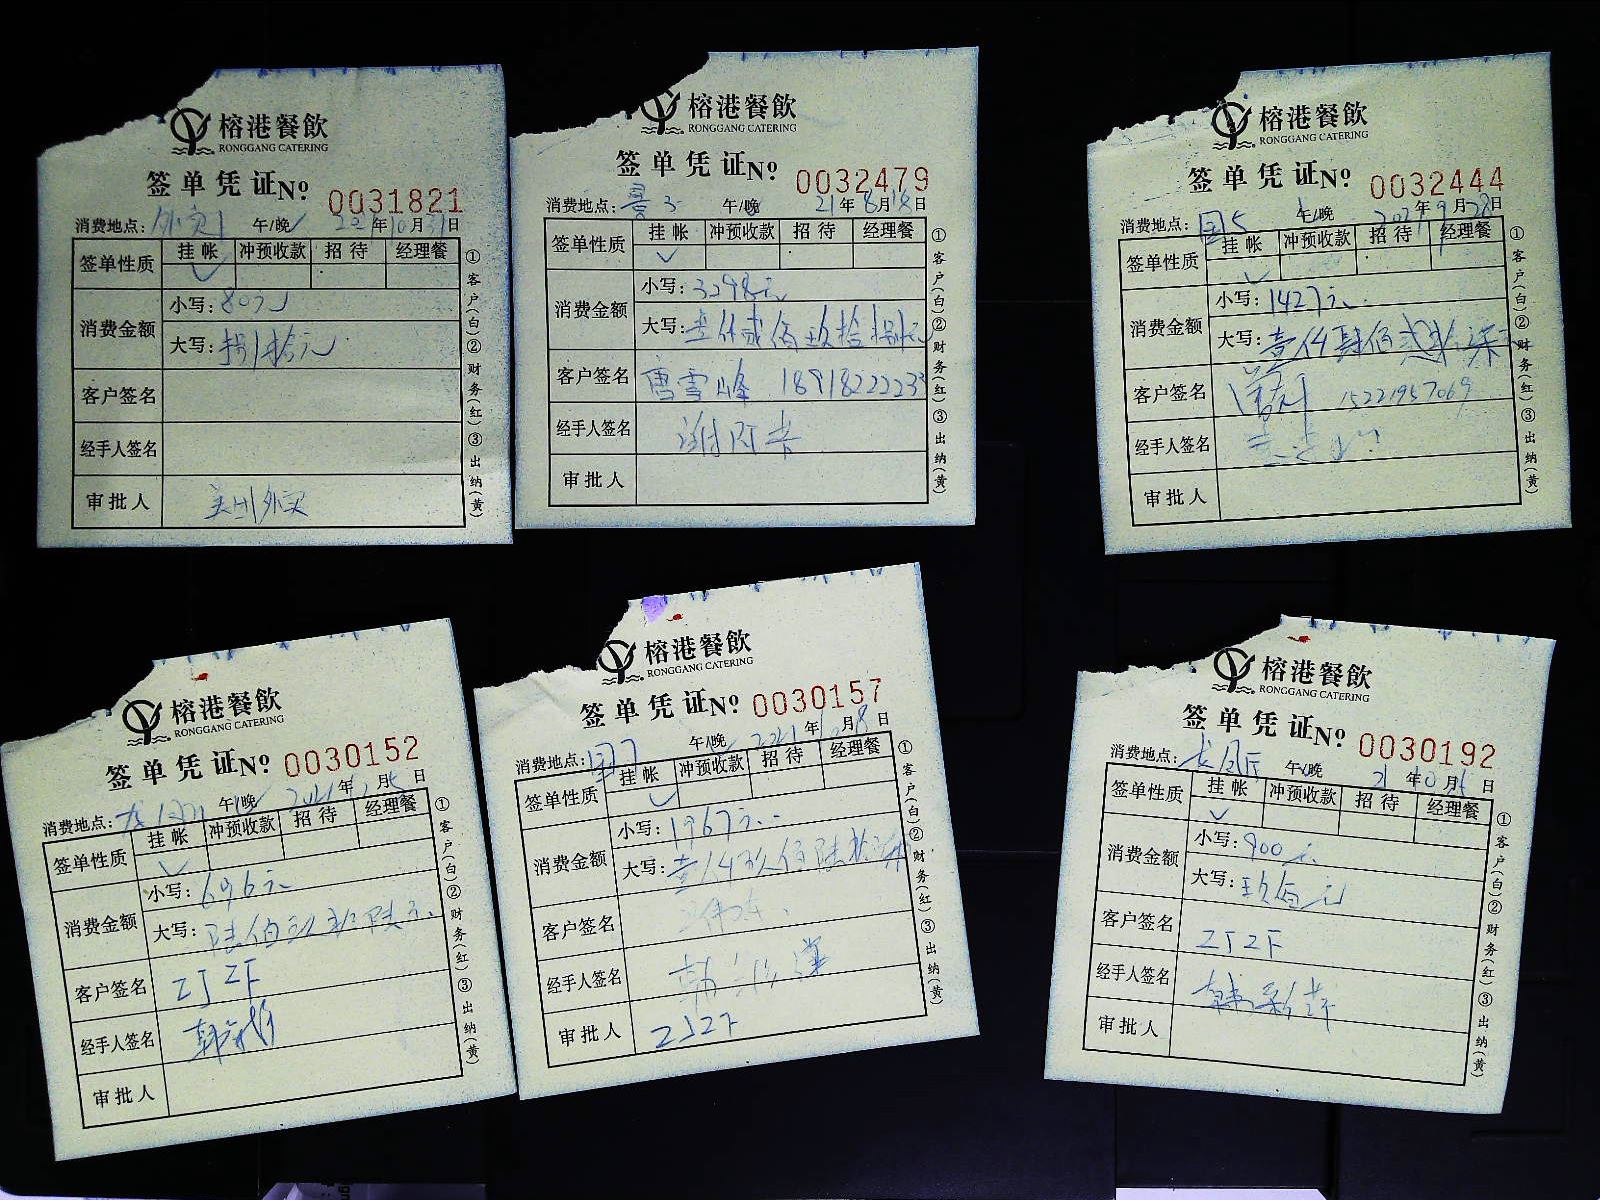 榕港餐飲
RONGGANG CATERING
签单凭证№ 0031821
消费地点: 外卖 午/晚 年10月31日
签单性质 挂帐 冲预收款 招待 经理餐
消费金额 小写:80元
大写:捌拾元
客户签名
经手人签名
审批人 外卖
①客户(白)②财务(红)③出纳(黄)
榕港餐飲
RONGGANG CATERING
签单凭证№ 0032479
消费地点: 午/晚 21年8月18日
签单性质 挂帐 冲预收款 招待 经理餐
消费金额 小写:3298元
大写: 仟贰佰玖拾捌元
客户签名 唐雪峰
经手人签名
审批人
①客户(白)②财务(红)③出纳(黄)
榕港餐飲
RONGGANG CATERING
签单凭证№ 0032444
消费地点: 国5 午/晚 2021年9月28日
签单性质 挂帐 冲预收款 招待 经理餐
消费金额 小写:1427元
大写:壹仟肆佰贰拾柒元
客户签名 15221957069
经手人签名
审批人
①客户(白)②财务(红)③出纳(黄)
榕港餐飲
RONGGANG CATERING
签单凭证№ 0030152
消费地点: 午/晚 2021年 月 日
签单性质 挂帐 冲预收款 招待 经理餐
消费金额 小写:696元
大写:陆佰玖拾陆元
客户签名 ZJZF
经手人签名
审批人
①客户(白)②财务(红)③出纳(黄)
榕港餐飲
RONGGANG CATERING
签单凭证№ 0030157
消费地点: 午/晚 2021年 月8日
签单性质 挂帐 冲预收款 招待 经理餐
消费金额 小写:1967元
大写:壹仟玖佰陆拾柒
客户签名
经手人签名
审批人
①客户(白)②财务(红)③出纳(黄)
榕港餐飲
RONGGANG CATERING
签单凭证№ 0030192
消费地点: 午/晚 21年10月 日
签单性质 挂帐 冲预收款 招待 经理餐
消费金额 小写:900元
大写:玖佰元
客户签名 ZJZF
经手人签名
审批人
①客户(白)②财务(红)③出纳(黄)